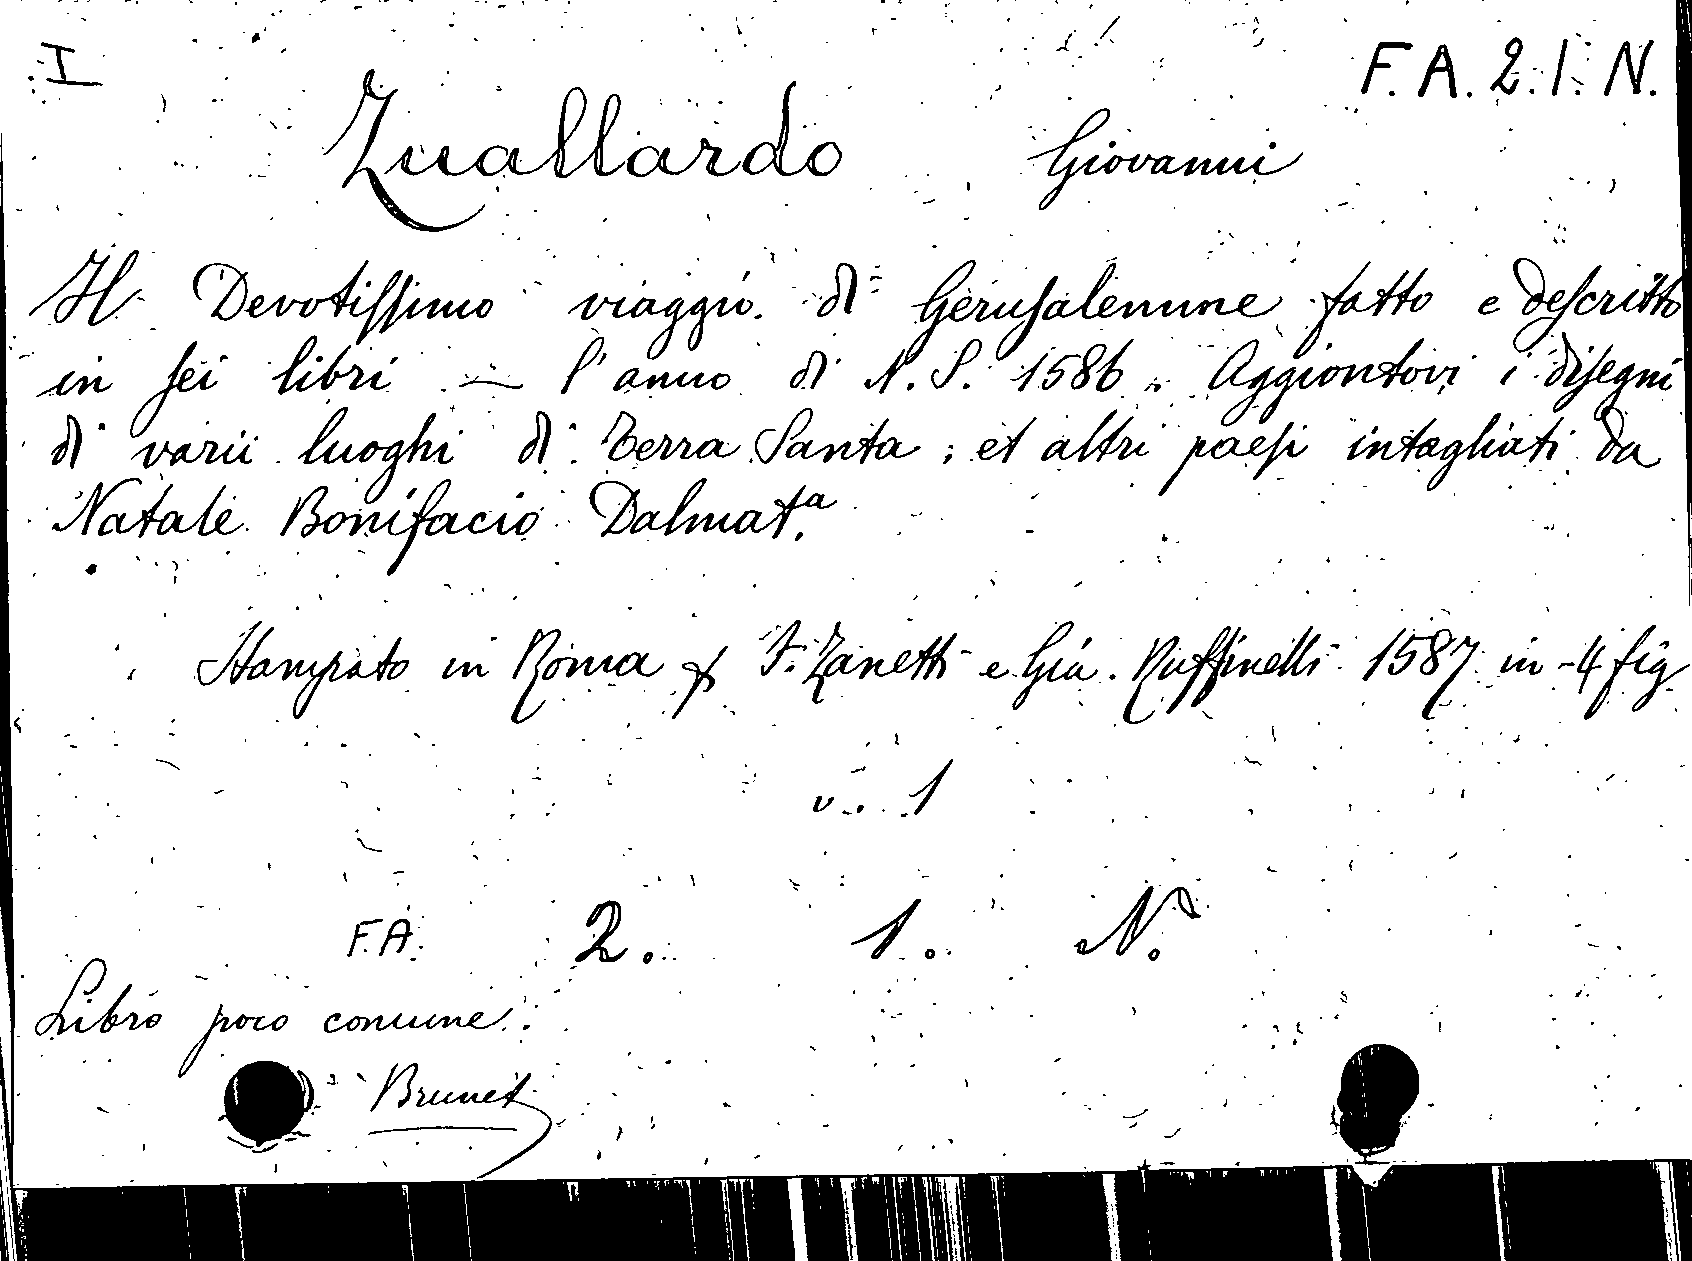 I F.A.2.1.N.
Zuallardo Giovanni
Il Devotiſſimo viaggio di Geruſalemme fatto e deſcritto
in ſei libri — l'anno di N.S. 1586. Aggiontovi i diſegni
di varii luoghi di Terra Santa; et altri paeſi intagliati da
Natale Bonifacio Dalmat.a
Stampato in Roma F. Zanetti e Gia. Ruffinelli 1587 in-4 fig
v. 1
F.A. 2. 1. N.
Libro poco comune.
Brunet